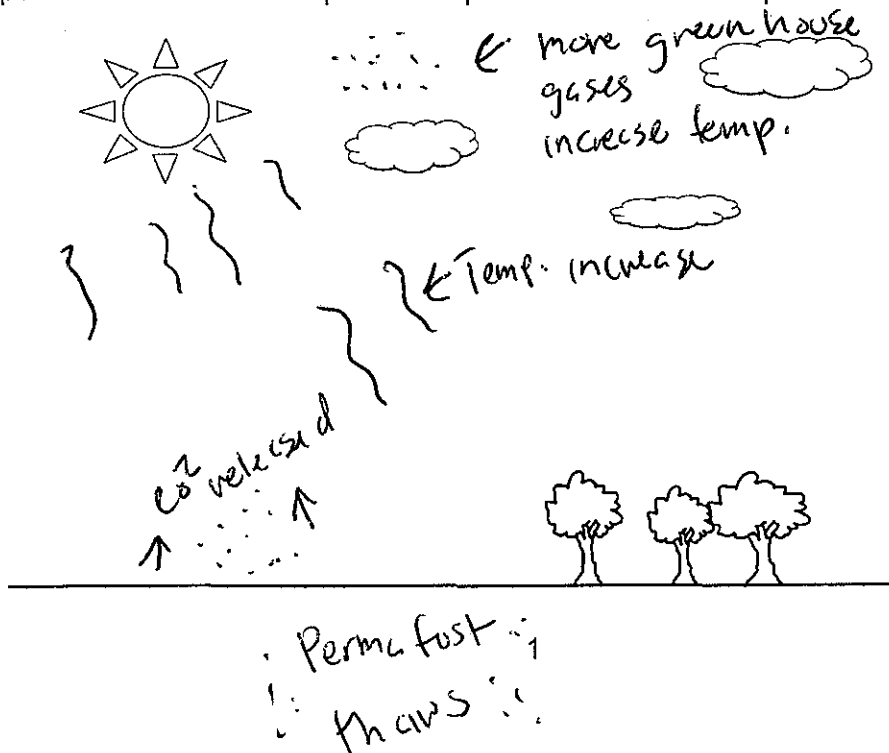 ← more green house
gases
increase temp.
← Temp. increase
CO² released
Permafust
thaws